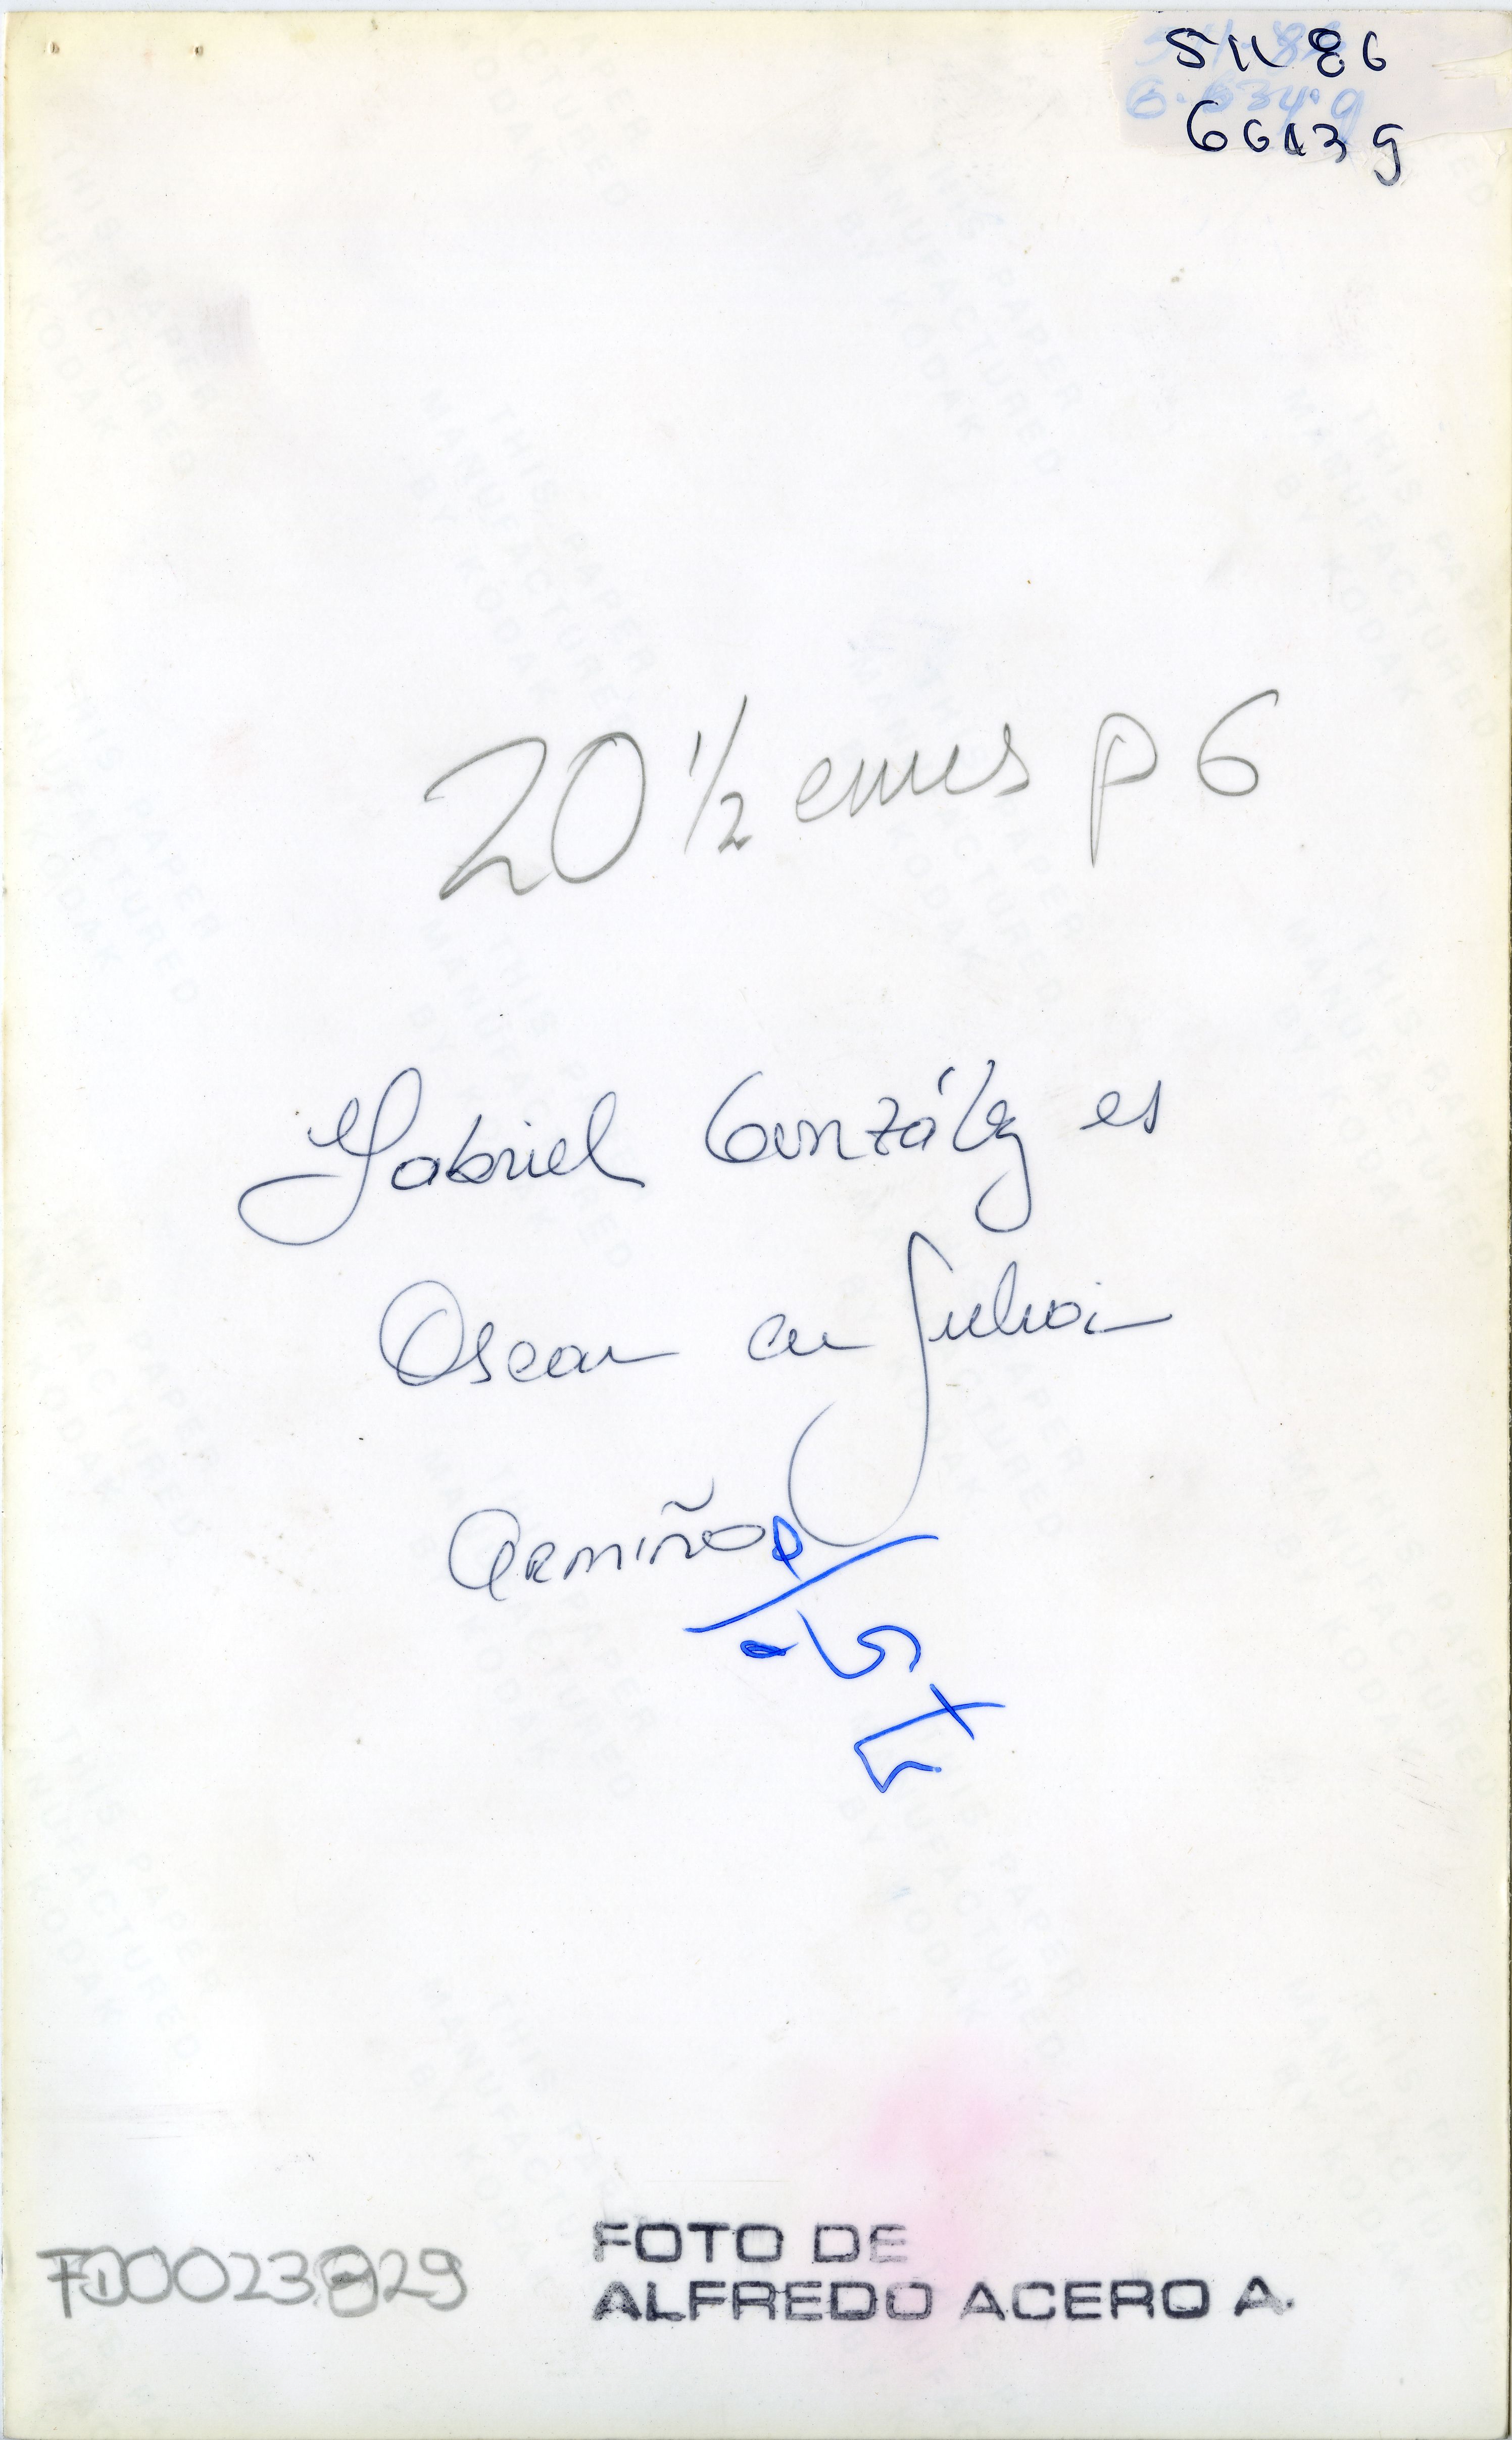 5 11 86
6 6 13 9
20 1/2 emes p 6
Gabriel González es
Oscar en Julio
Armiño
FOTO DE
ALFREDO ACERO A.
THIS PAPER
MANUFACTURED
BY KODAK